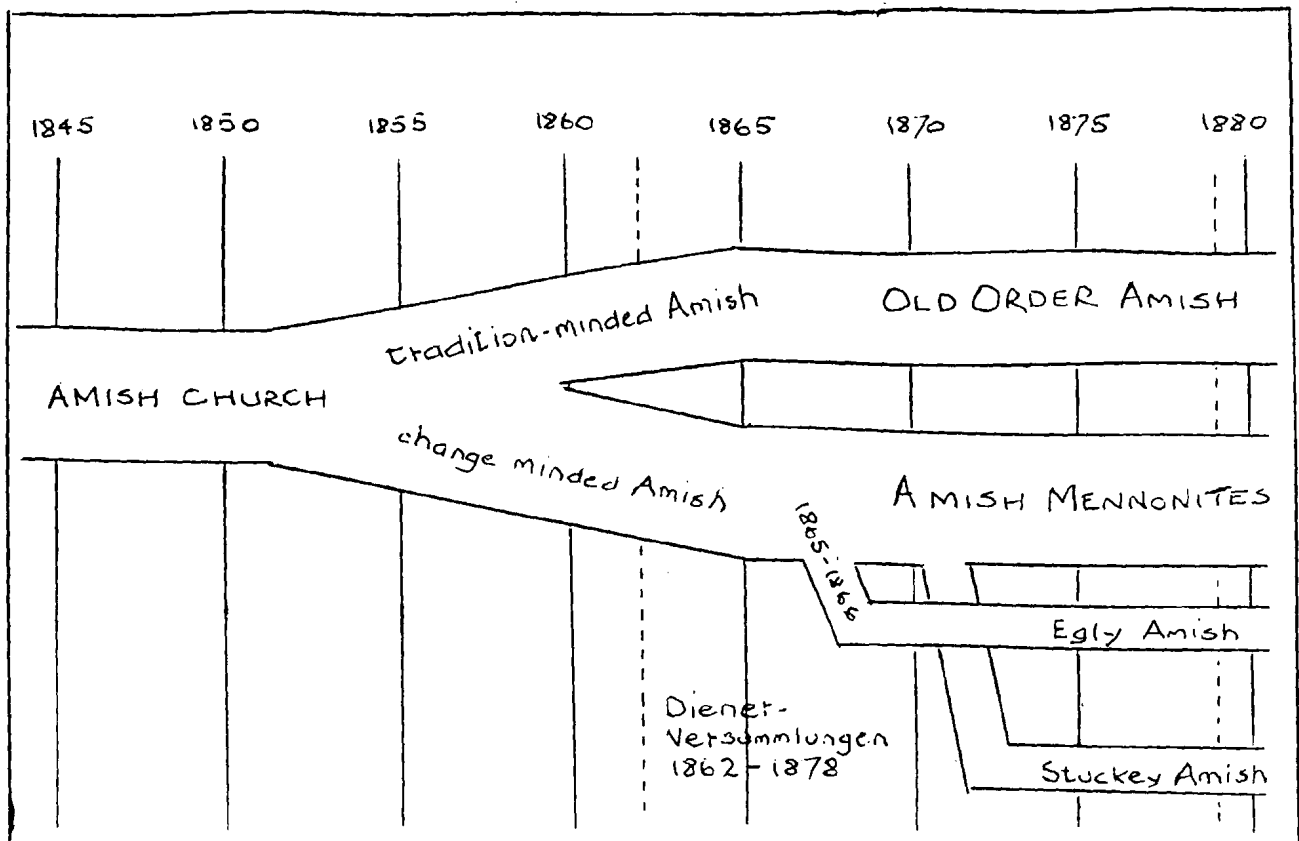 1845 1850 1855 1860 1865 1870 1875 1880
tradition-minded Amish
OLD ORDER AMISH
AMISH CHURCH
change minded Amish
AMISH MENNONITES
1865-1866
Egly Amish
Diener-
Versammlungen
1862-1878
Stuckey Amish